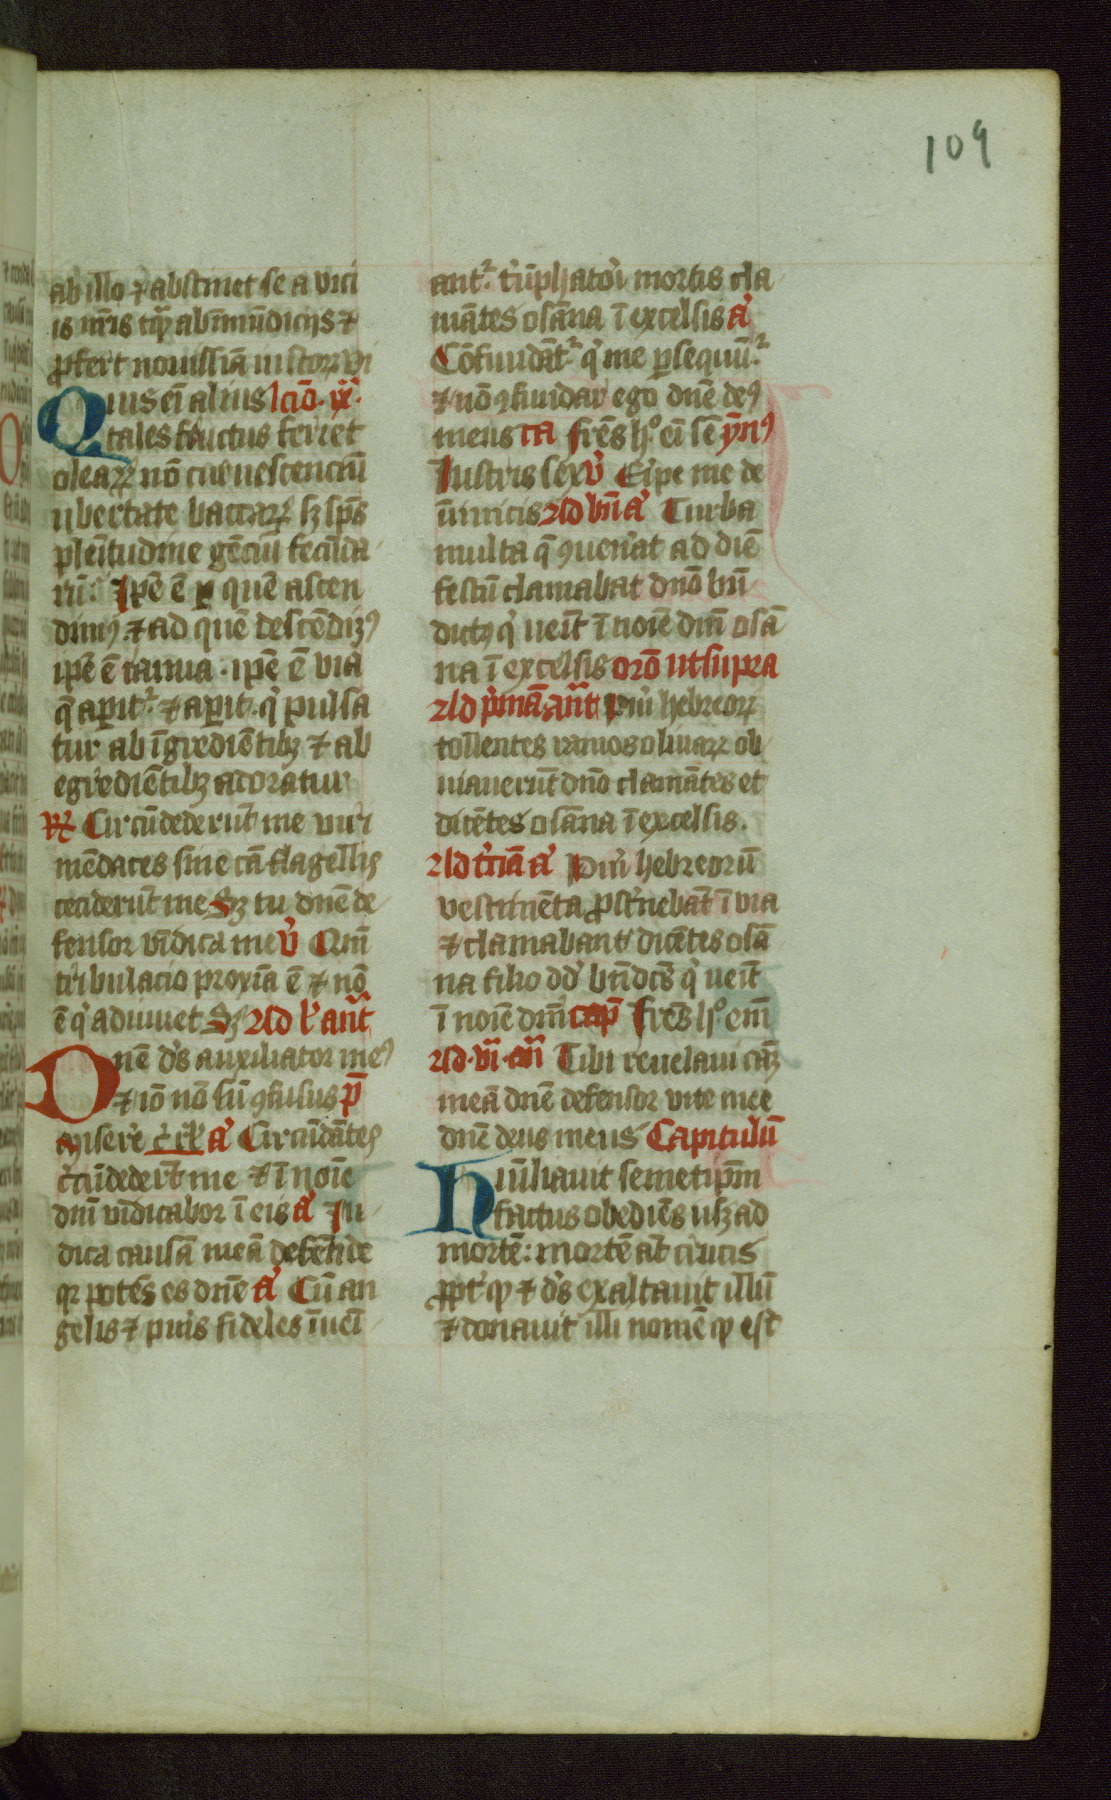 109
ab illo ⁊ abstinet se a vici
is mr̄is tāq̄ ab īmūdicijs ⁊
ꝓfert nouissīa
Quis em̄ alius lcīo. ix.
tales fructus ferret
olearꝝ nō crevescenciū
ubertate baccarꝝ sꝫ sp̄s
plēitudine gēciū fecūda
rū: Ip̄e ē p quē ascen
dimꝰ. ⁊ ad quē descēdimꝰ
ip̄e ē ianua. ip̄e ē via
q̄ aꝑit᷑. ⁊ aꝑit. q̇ pulsa
tur ab īgrediētibꝫ ⁊ ab
egrediētibꝫ adoratur
R̷ Circūdederūt me viri
mēdaces sine cā flagellis
ceciderūt me Sꝫ tu dn̄e de
fensor vīdica me v̓ Qm̄
tribulacio proxīa ē ⁊ nō
ē q̇ adiuuet Sꝫ Ad l' ant̄
Dn̄e ds̄ auxiliator meꝰ
⁊ iō nō sū ꝯfusus p̄
Misere a̓ Circūdātes
c̓cūdeder̄t me ⁊ ī noīe
dn̄i vīdicabor ī eis a̓ Iu
dica causā meā defende
qꝛ potēs es dn̄e a̓ Cū an
gelis ⁊ pu̓is fideles īuei
ant᷑. t̓ūphato̓i mortis cla
mātes osāna ī excelsis a̓
Cōfundāt᷑ q̇ me ꝑsequū᷑
⁊ nō ꝯfundar ego dn̄e deꝰ
meus ca frēs h̊ ei sē yn̄ꝰ
Lustris sex v̓ Eripe me de
īimicis Ad bn̄ a̓ Turba
multa q̄ ꝯuen̓at ad diē
festū clamabat dn̄o bn̄
dictꝫ q̇ ueīt ī noīe dn̄i osā
na ī excelsis orō ut supra
Ad p̓mā ant̄ Pu̓i hebreorꝝ
tollentes ramos oliuarꝝ ob
uiauerūt dn̄o clamātes et
dicētes osāna ī excelsis.
Ad t̓ciā a̓ Pu̓i hebreorū
vestimēta ꝓst̓nebāt ī via
⁊ clamabant dicētes osā
na filio dd̓ bn̄dcs̄ q̇ ueīt
ī noīe dn̄i cap̄ frēs h̊ em̄
Ad. vi. an̄ Tibi reuelaui cāꝫ
meā dn̄e defensor vite mee
dn̄e deus meus Capitulū
Hūiliauit semetip̄m
factus obediēs usqꝫ ad
mortē: mortē at̄ crucis
ꝓpt̓ qꝫ ⁊ ds̄ exaltauit illū
⁊ donauit illi nomē qꝫ est